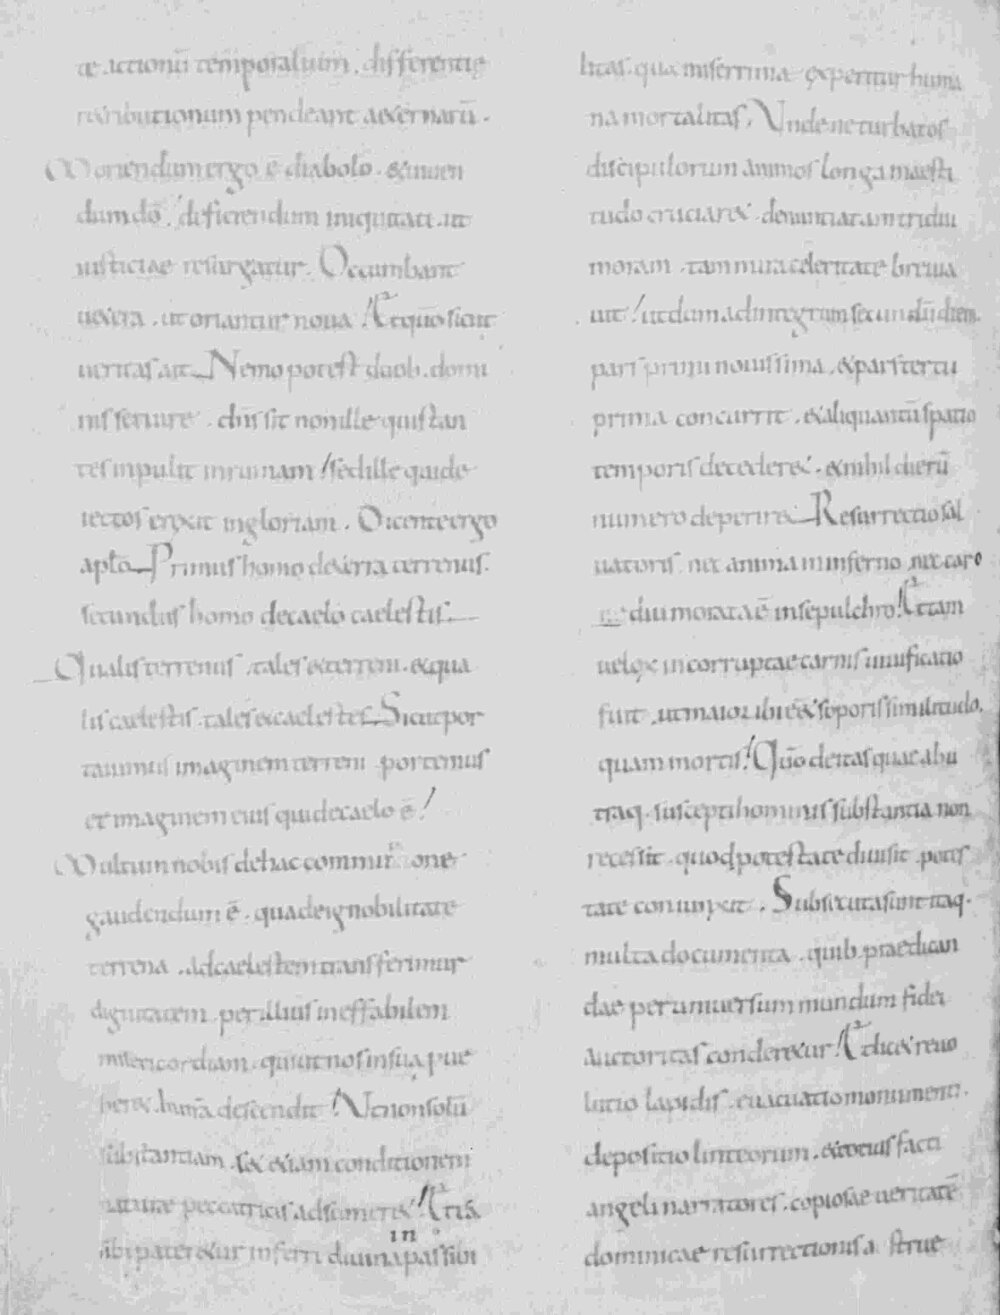 tȩ actionū temporalium. differentie
retributionum pendeant aeternarū.
Moriendum ergo ē diabolo. & uiuen
dum dō. deficiendum iniquitati. ut
iusticiae resurgatur. Occumbant
uetera. ut oriantur noua. Et quō sicut
ueritas ait. Nemo potest duob. domi
nis seruire. dn̄s sit non ille qui stan
tes impulit in ruinam. sed ille qui de
iectos erexit in gloriam. Dicente ergo
aplō. Primus homo de terra terrenus.
secundus homo de caelo caelestis.
Qualis terrenus. tales et terreni. et qua
lis caelestis. tales et caelestes. Sicut por
tauimus imaginem terreni portemus
et imaginem eius qui de caelo ē.
Multum nobis de hac commut one
gaudendum ē. qua de ignobilitate
terrena. ad caelestem transferimur
dignitatem. per illius ineffabilem
misericordiam. qui ut nos in sua pue
heret. in nr̄a descendit. Ut non solū
substantiam. sed etiam conditionem
naturae peccatricis adsumeret. Et ea
sibi pateretur inferri diuina in passibi
litas. qua miserrima experitur huma
na mortalitas. Unde ne turbatos
discipulorum animos longa maesti
tudo cruciaret. denunciatam tridui
moram. tam mira celeritate breuia
uit. ut dum ad integrum secundū diem.
pars primi nouissima. & pars tertii
prima concurrit. et aliquantū spatio
temporis decederet. & nihil dierū
numero deperiret. Resurrectio sal
uatoris nec anima in inferno nec caro
diu morata ē in sepulchro. Et tam
uelox incorruptae carnis uiuificatio
fuit. ut maior ibi eēt soporis similitudo.
quam mortis. Quō deitas quae ab u
traq. suscepti hominis substantia non
recessit. quod potestate diuisit. potes
tate coniunxit. Subsecuta sunt itaq.
multa documenta. quib. praedican
dae per uniuersum mundum fidei
auctoritas conderetur. Et licet reuo
lutio lapidis. euacuatio monumenti.
depositio linteorum. et totius facti
angeli narratores. copiosae ueritatē
dominicae resurrectionis a strue